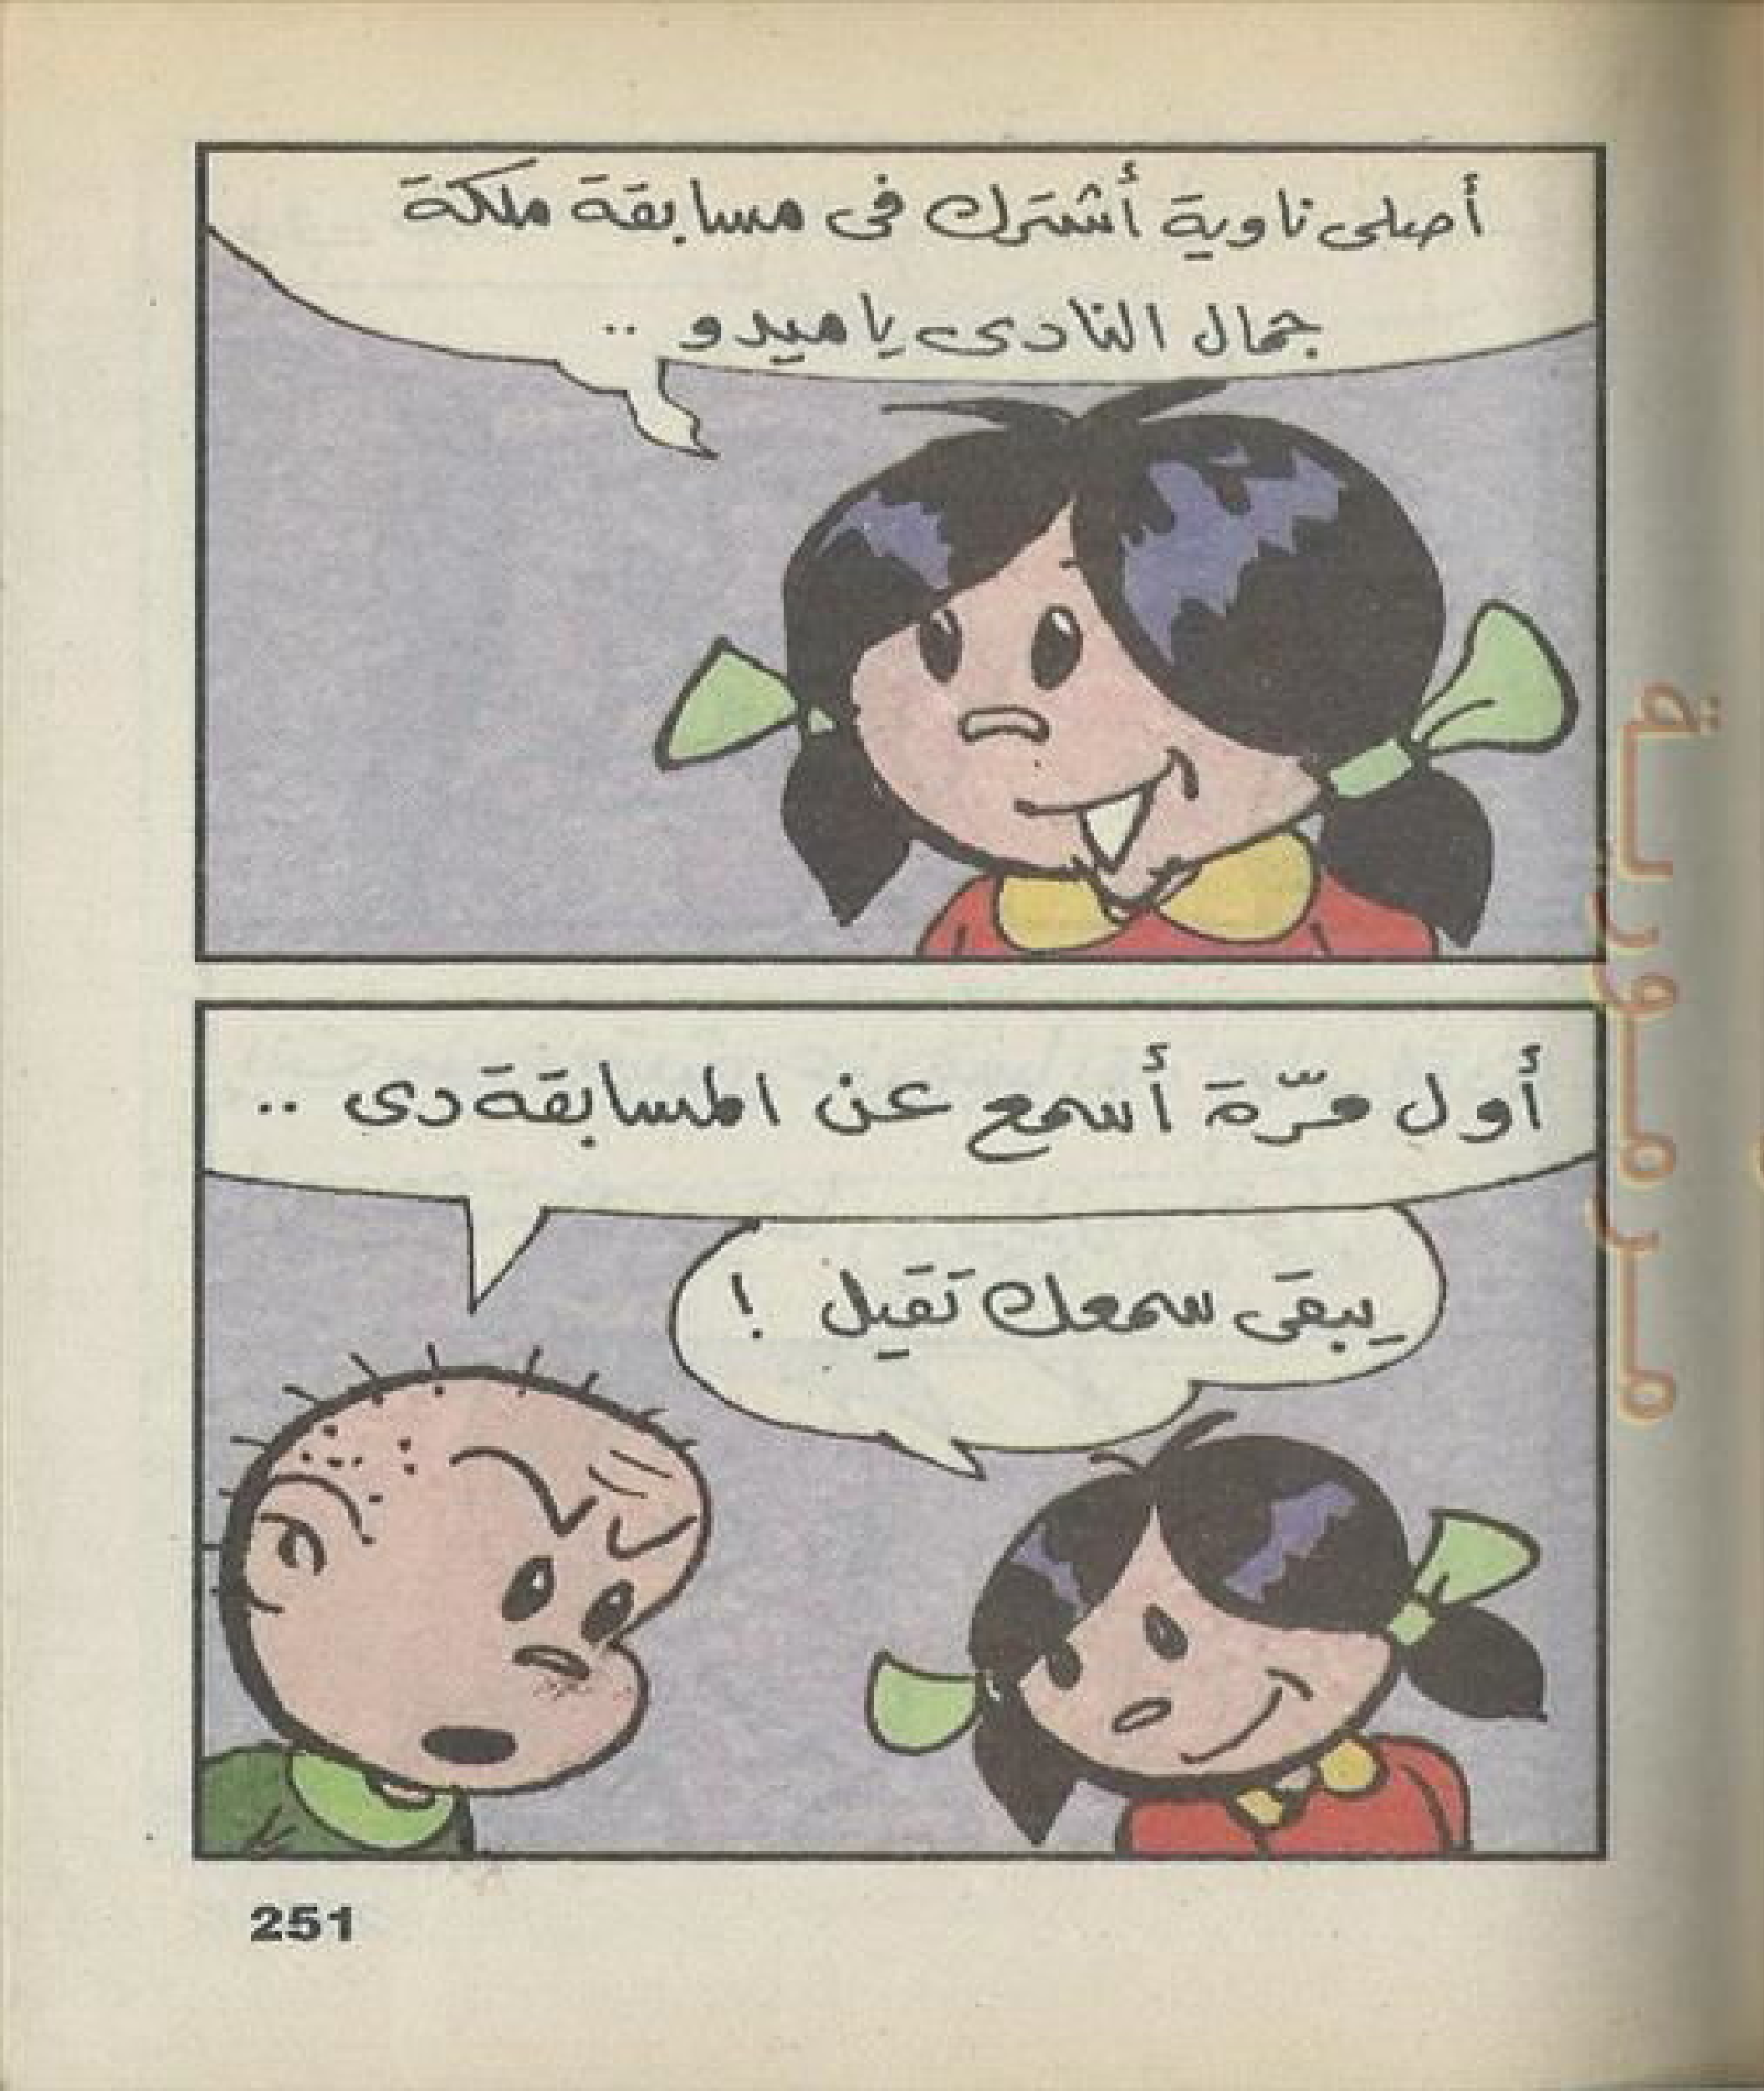 أصلى ناوية أشترك فى مسابقة ملكة
جمال النادى يا ميدو ..
أول مرّة أسمع عن المسابقة دى ..
يبقى سمعك تقيل !
251
مرمورية